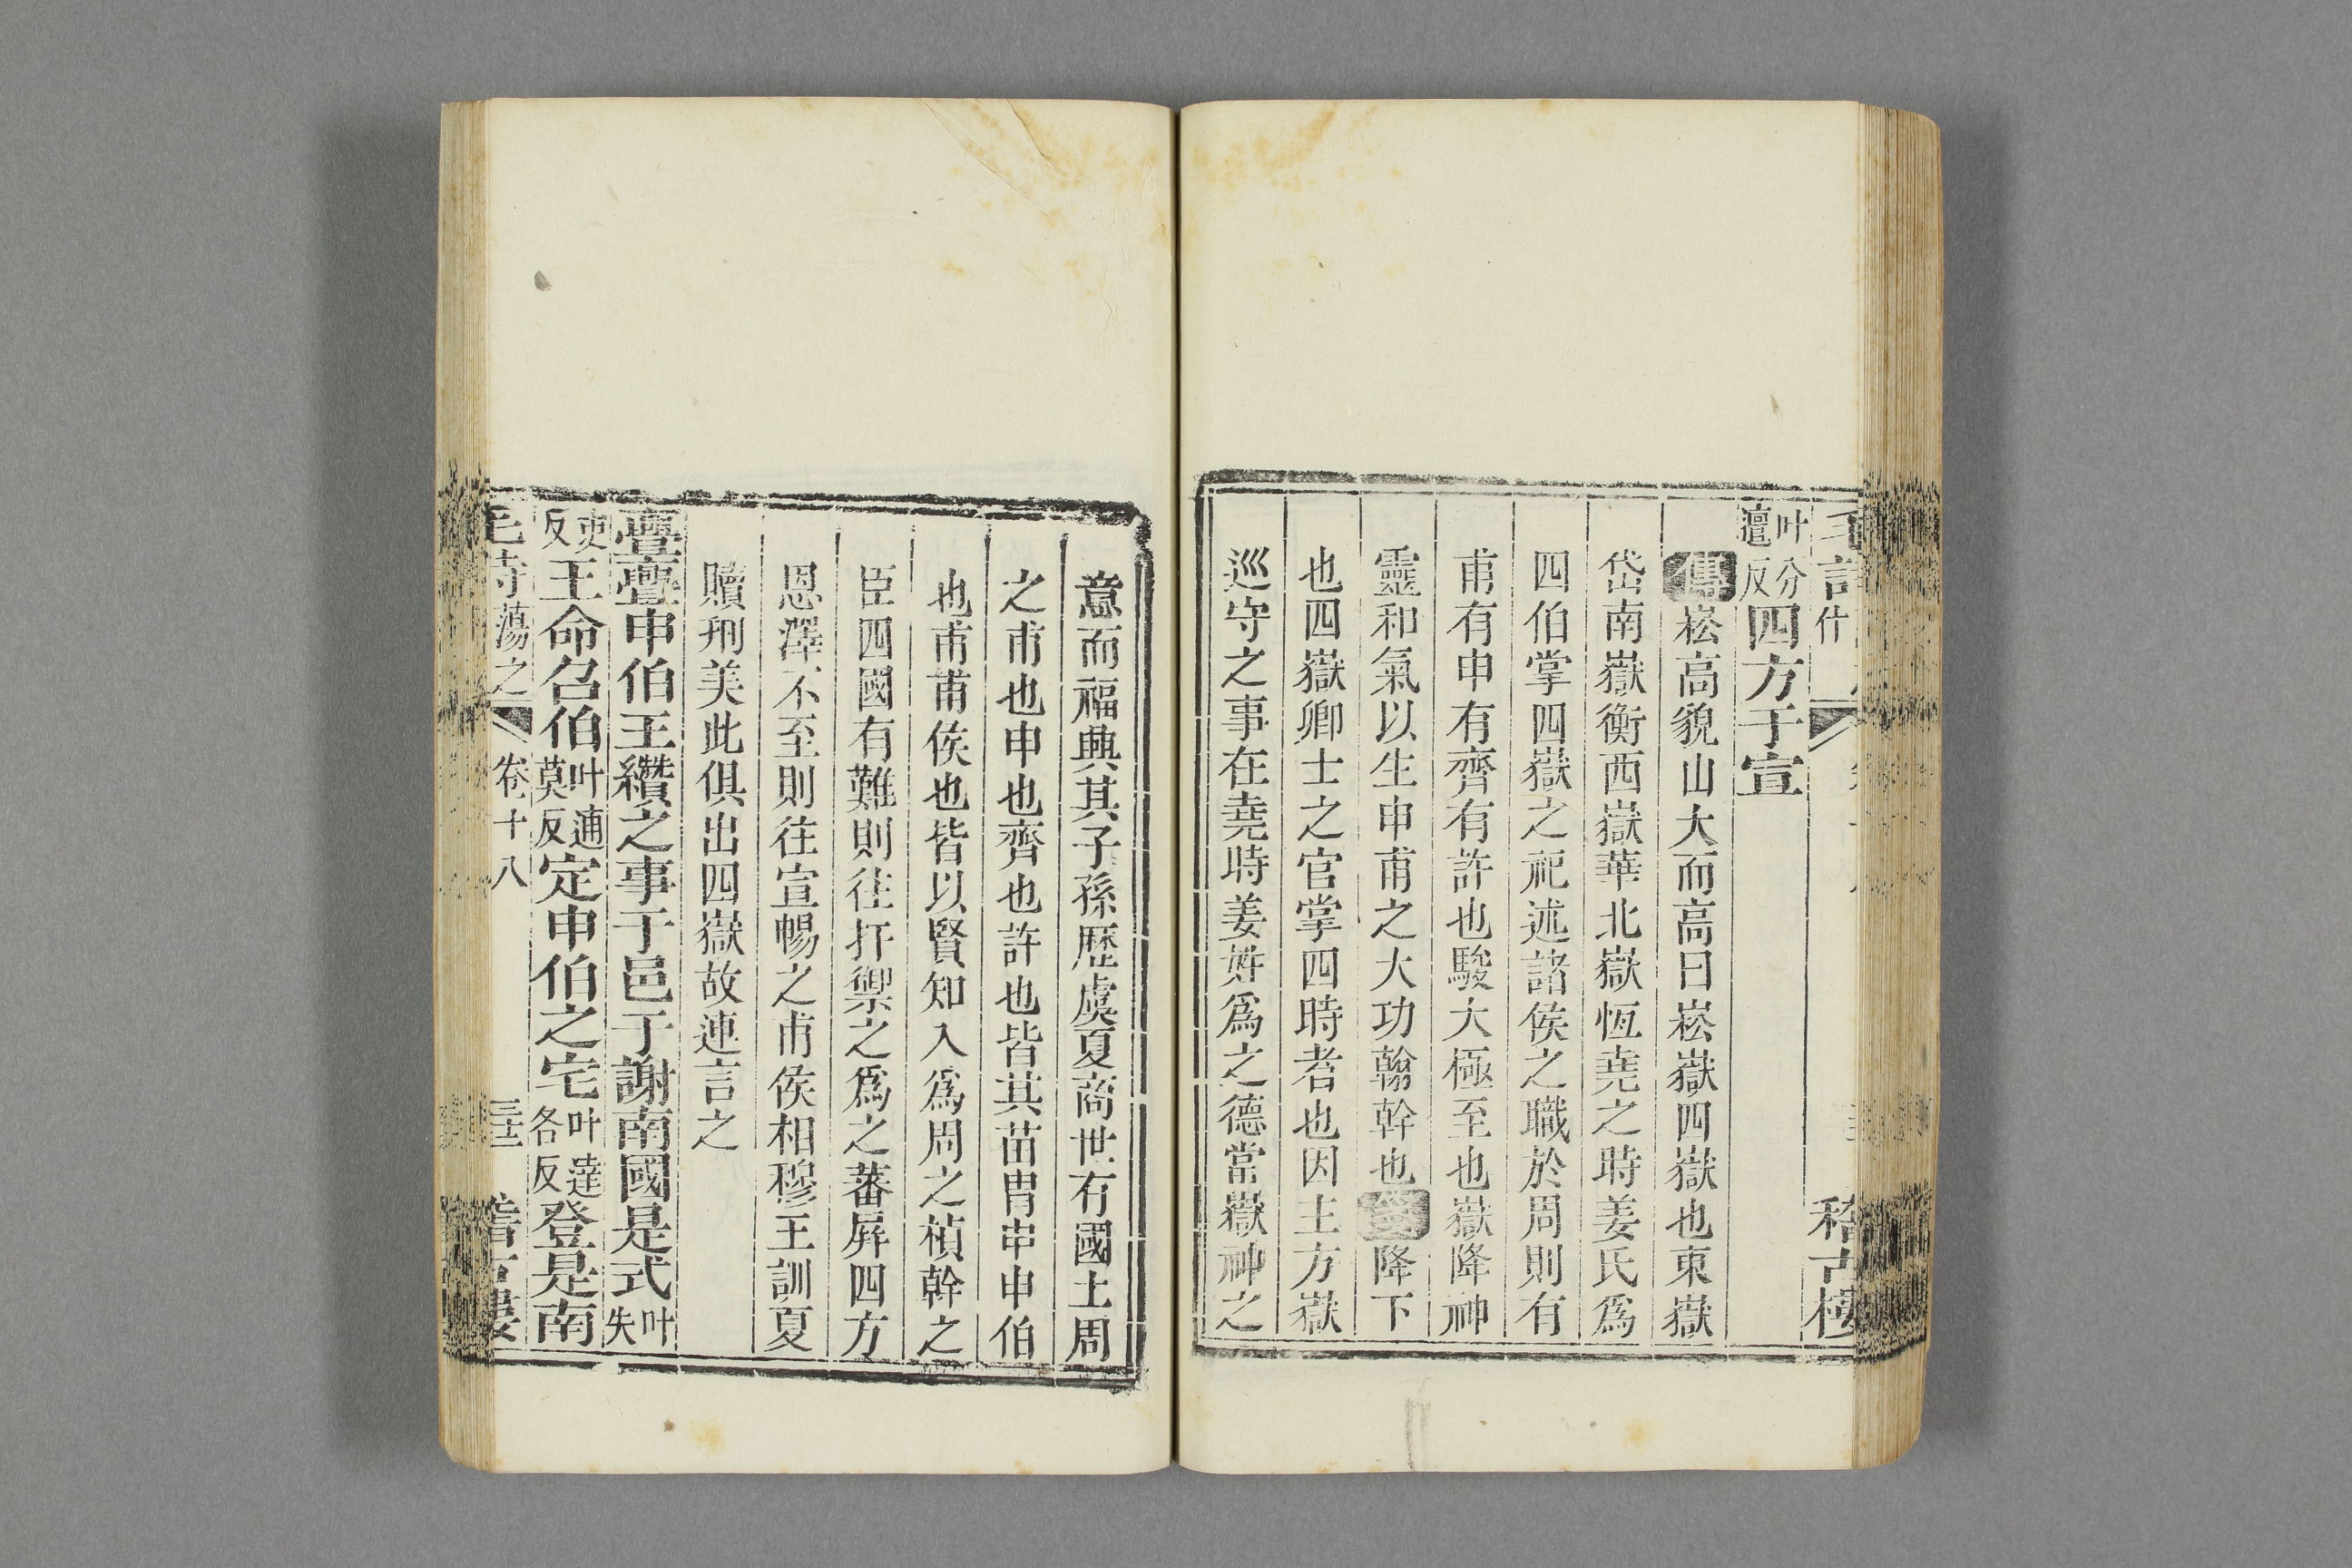 毛詩 什 稽古樓
叶分
邅反四方于宣
傳崧高貌山大而高曰崧嶽四嶽也東嶽
岱南嶽衡西嶽華北嶽恆堯之時姜氏爲
四伯掌四嶽之祀述諸侯之職於周則有
甫有申有齊有許也駿大極至也嶽降神
靈和氣以生申甫之大功翰幹也箋降下
也四嶽卿士之官掌四時者也因主方嶽
巡守之事在堯時姜姓爲之德當嶽神之
意而福興其子孫歷虞夏商世有國土周
之甫也申也齊也許也皆其苗胄甫申伯
也甫甫侯也皆以賢知入爲周之楨幹之
臣四國有難則往扞禦之爲之蕃屏四方
恩澤不至則往宣暢之甫侯相穆王訓夏
贖刑美此俱出四嶽故連言之
亹亹申伯王纘之事于邑于謝南國是式叶失
吏反王命召伯叶逋莫反定申伯之宅叶達各反登是南
毛詩蕩之 卷十八 三十二 稽古樓